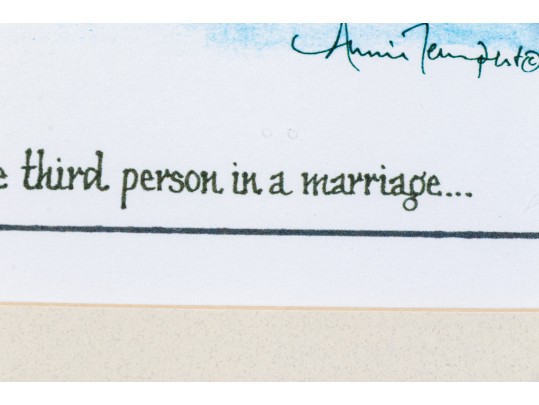 Annie Tempest©
e third person in a marriage...